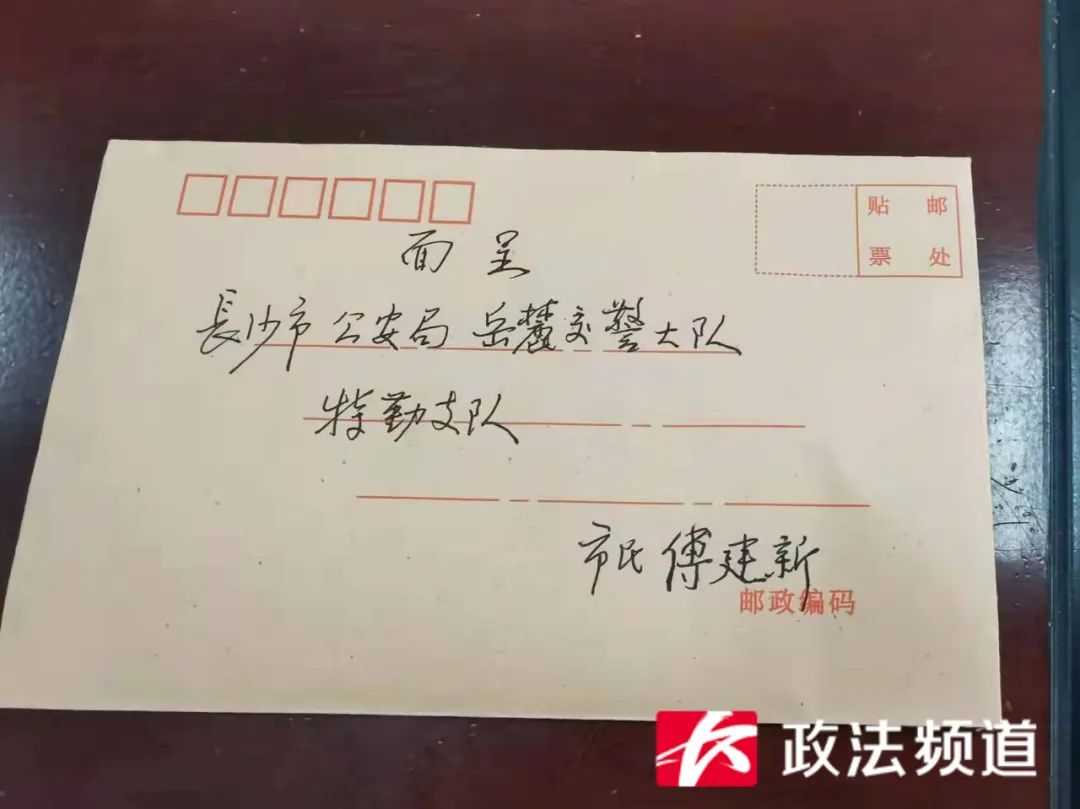 贴 邮
票 处
面呈
長沙市公安局岳麓交警大队
特勤支队
市民 傅建新
邮政编码
政法频道